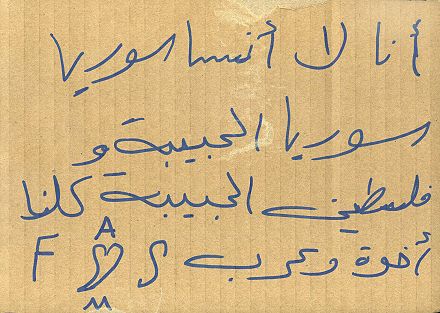 أنا لا أنسا سوريا
سوريا الحبيبة و
فلسطين الحبيبة كلنا
أخوة وعرب
A
F S
M